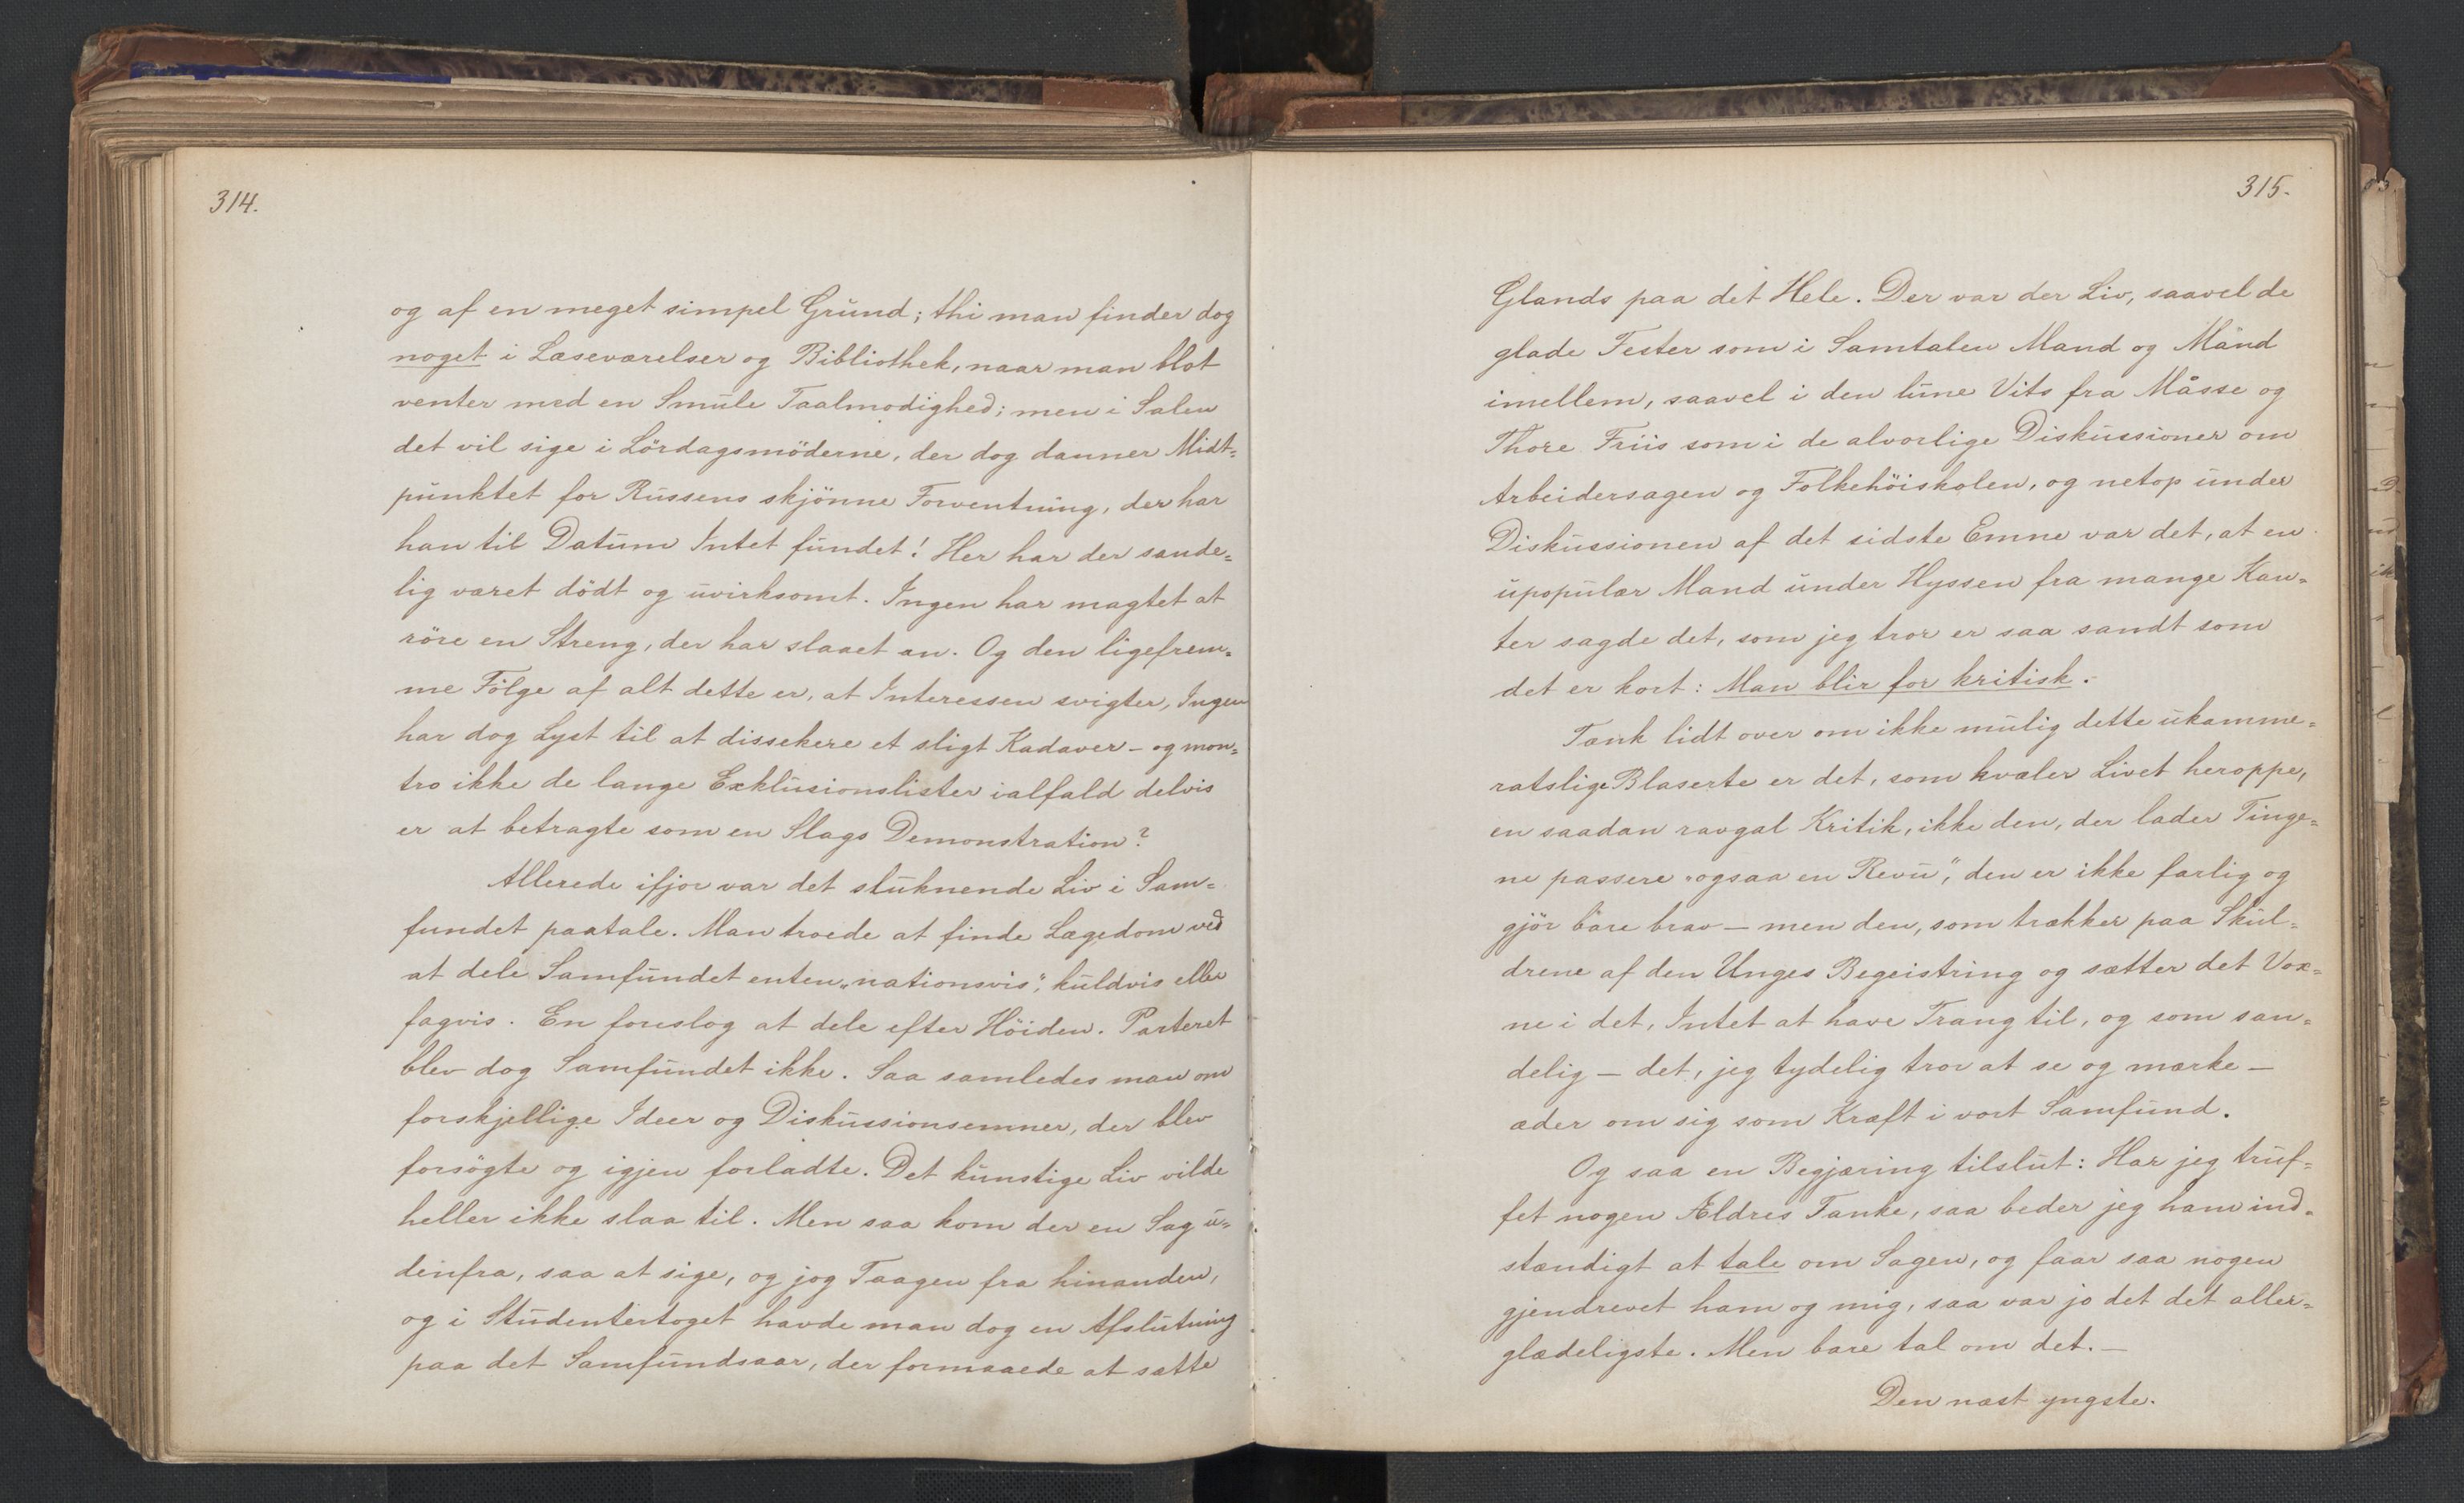 314.
og af en meget simpel Grund; thi man finder dog
noget i Læseværelser og Bibliothek, naar man blot
venter med en Smule Taalmodighed; men i Salen
det vil sige i Lördagsmöderne, der dog danner Midt=
punktet for Russens skjönne Forventning, der har
han til Datum Intet fundet! Her har der sande=
lig været dödt og uvirksomt. Ingen har magtet at
röre en Streng, der har slaaet an. Og den ligefrem=
me Fölge af alt dette er, at Interessen svigter, Ingen
har dog Lyst til at dissekere et sligt Kadaver – og mon=
tro ikke de lange Exklusionslister ialfald delvis
er at betragte som en Slags Demonstration?
Allerede ifjor var det sluknende Liv i Sam=
fundet paatale. Man troede at finde Lægedom ved
at dele Samfundet enten „nationsvis“, kuldvis eller
fagvis. En foreslog at dele efter Höiden. Parteret
blev dog Samfundet ikke. Saa samledes man om
forskjellige Ideer og Diskussionsemner, der blev
forsögte og igjen forladte. Det kunstige Liv vilde
heller ikke slaa til. Men saa kom der en Sag u=
denfra, saa at sige, og jog Taagen fra hinanden,
og i Studentertoget havde man dog en Afslutning
paa det Samfundsaar, der formaaede at sætte
315.
Glands paa det Hele. Der var der Liv, saavel de
glade Fester som i Samtalen Mand og Mand
imellem, saavel i den lune Vits fra Måsse og
Thore Friis som i de alvorlige Diskussioner om
Arbeidersagen og Folkehöiskolen, og netop under
Diskussionen af det sidste Emne var det, at en
upopulær Mand under Hyssen fra mange Kan=
ter sagde det, som jeg tror er saa sandt som
det er kort: Man blir for kritisk.
Tænk lidt over om ikke mulig dette ukamme=
ratslige Blaserte er det, som kvæler Livet heroppe,
en saadan ravgal Kritik, ikke den, der lader Tinge=
ne passere „ogsaa en Revu“, den er ikke farlig og
gjör bare brav – men den, som trækker paa Skul=
drene af den Unges Begeistring og sætter det Vox=
ne i det, Intet at have Trang til, og som san=
delig – det, jeg tydelig tror at se og mærke –
æder om sig som Kræft i vort Samfund.
Og saa en Begjæring tilslut: Har jeg truf=
fet nogen Ældres Tanke, saa beder jeg ham ind=
stændigt at tale om Sagen, og faar saa nogen
gjendrevet ham og mig, saa var jo det det aller=
glædeligste. Men bare tal om det. –
Den næst yngste.